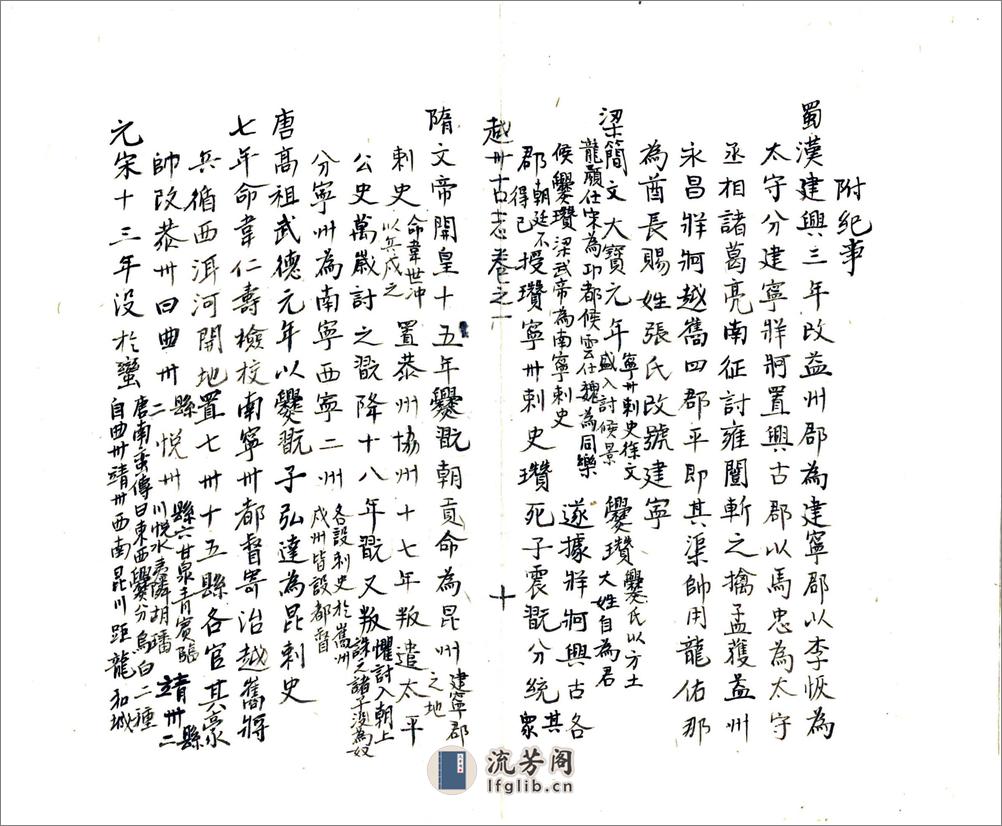 附紀事
蜀漢建興三年改益州郡為建寧郡以李恢為
太守分建寧牂牁置興古郡以馬忠為太守
丞相諸葛亮南征討雍闓斬之擒孟獲益州
永昌牂牁越嶲四郡平即其渠帥用龍佑那
為酋長賜姓張氏改號建寧
梁簡文大寶元年寧州刺史徐文盛入討侯景爨瓚爨氏以方土大姓自為君
龍顏仕宋為邛都侯雲仕魏為同樂
侯爨瓚梁武帝為南寧刺史遂據牂牁興古各
郡朝廷不得已授瓚寧州刺史瓚死子震翫分統其眾
越州古志卷之一
十
隋文帝開皇十五年爨翫朝貢命為昆州建寧郡之地
刺史命韋世沖以兵戍之置恭州協州十七年叛遣太平
公史萬歲討之翫降十八年翫又叛懼討入朝上誅之諸子沒為奴
分寧州為南寧西寧二州各設刺史於嶲州戎州皆設都督
唐高祖武德元年以爨翫子弘達為昆刺史
七年命韋仁壽檢校南寧州都督寄治越嶲將
兵循西洱河開地置七州十五縣各官其豪
帥改恭州曰曲州縣二悅州縣六甘泉青賓臨川悅水夷隣胡璠靖州縣二
元宋十三年沒於蠻唐南蛮傳曰東西爨分烏白二種自曲州靖州西南昆川距龍和城
流芳阁
lfglib.cn